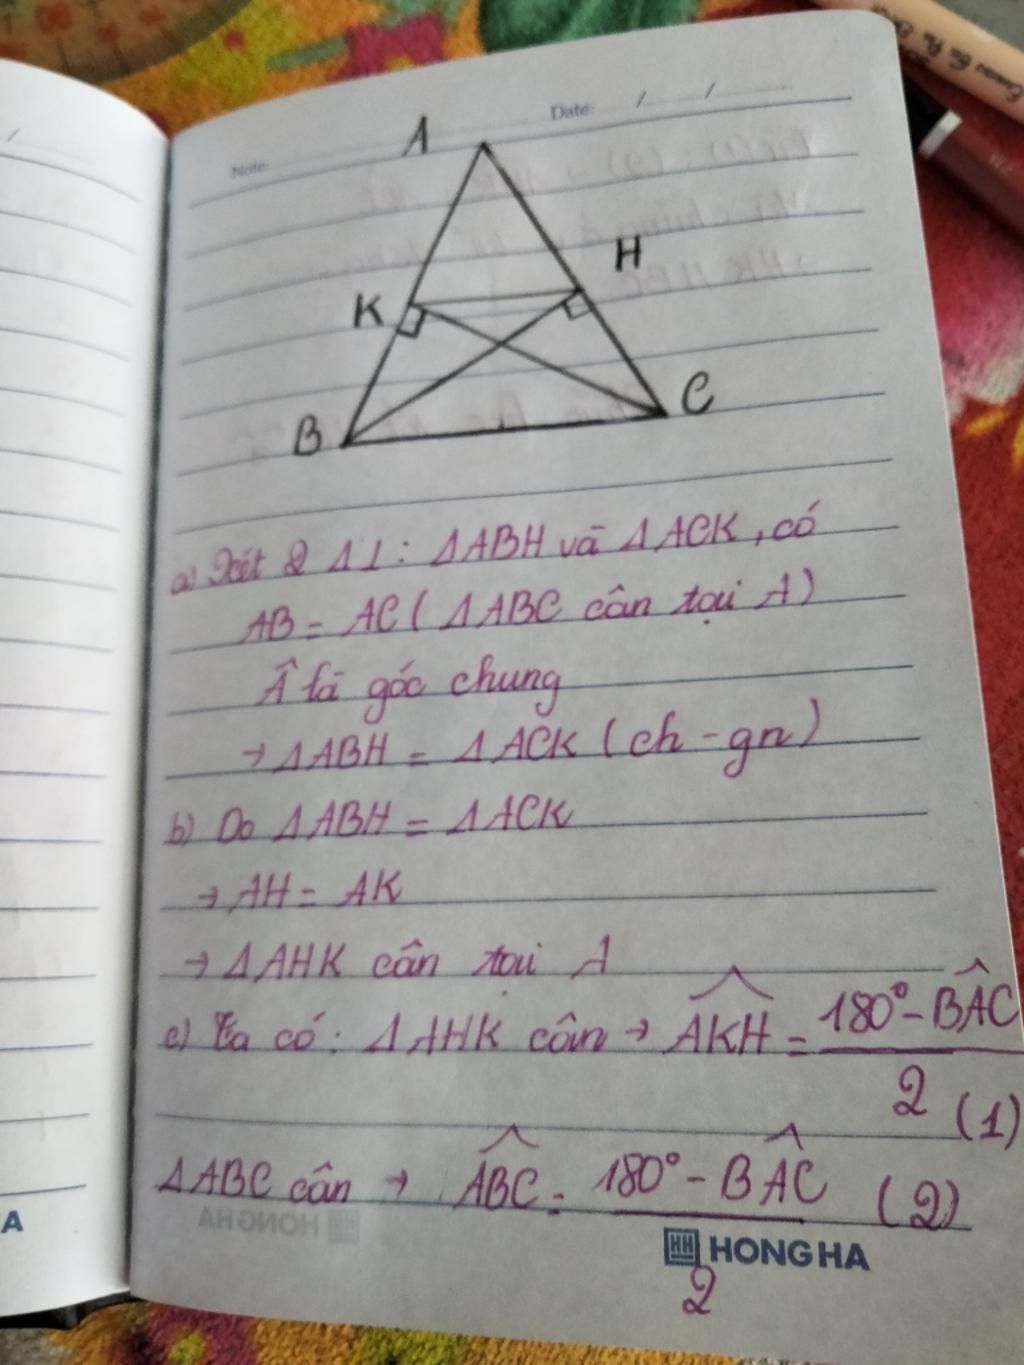 Note:
Date: / /
A
H
K
C
B
a) Xét 2 Δ⊥: ΔABH và ΔACK, có
AB = AC (ΔABC cân tại A)
Â là góc chung
→ ΔABH = ΔACK (ch - gn)
b) Do ΔABH = ΔACK
→ AH = AK
→ ΔAHK cân tại A
c) Ta có: ΔAHK cân → \widehat{AKH} = \frac{180° - B\widehat{A}C}{2} (1)
ΔABC cân → \widehat{ABC} = \frac{180° - B\widehat{A}C}{2} (2)
HH HONG HA
A